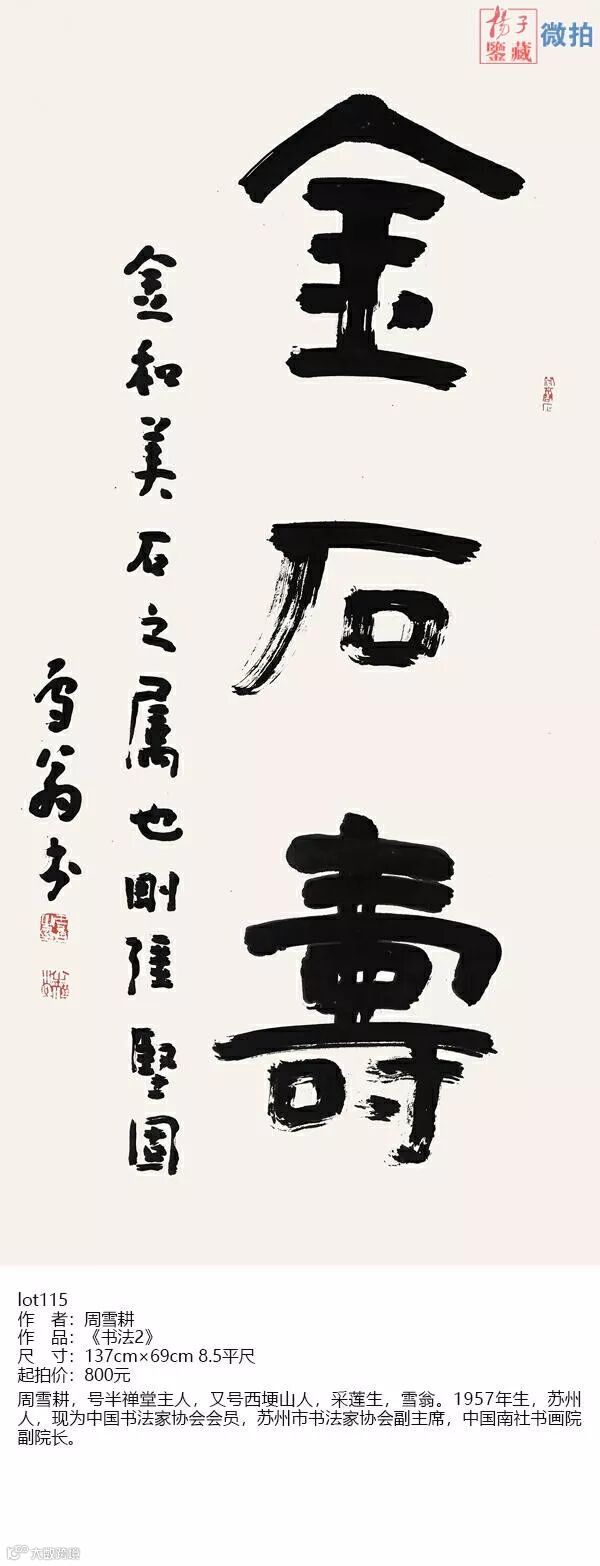 揚子
鑒藏
微拍
金石壽
金和美石之属也剛強堅固
雪翁书
lot115
作 者：周雪耕
作 品：《书法2》
尺 寸：137cm×69cm 8.5平尺
起拍价：800元
周雪耕，号半禅堂主人，又号西埂山人，采莲生，雪翁。1957年生，苏州
人，现为中国书法家协会会员，苏州市书法家协会副主席，中国南社书画院
副院长。
大数跨境